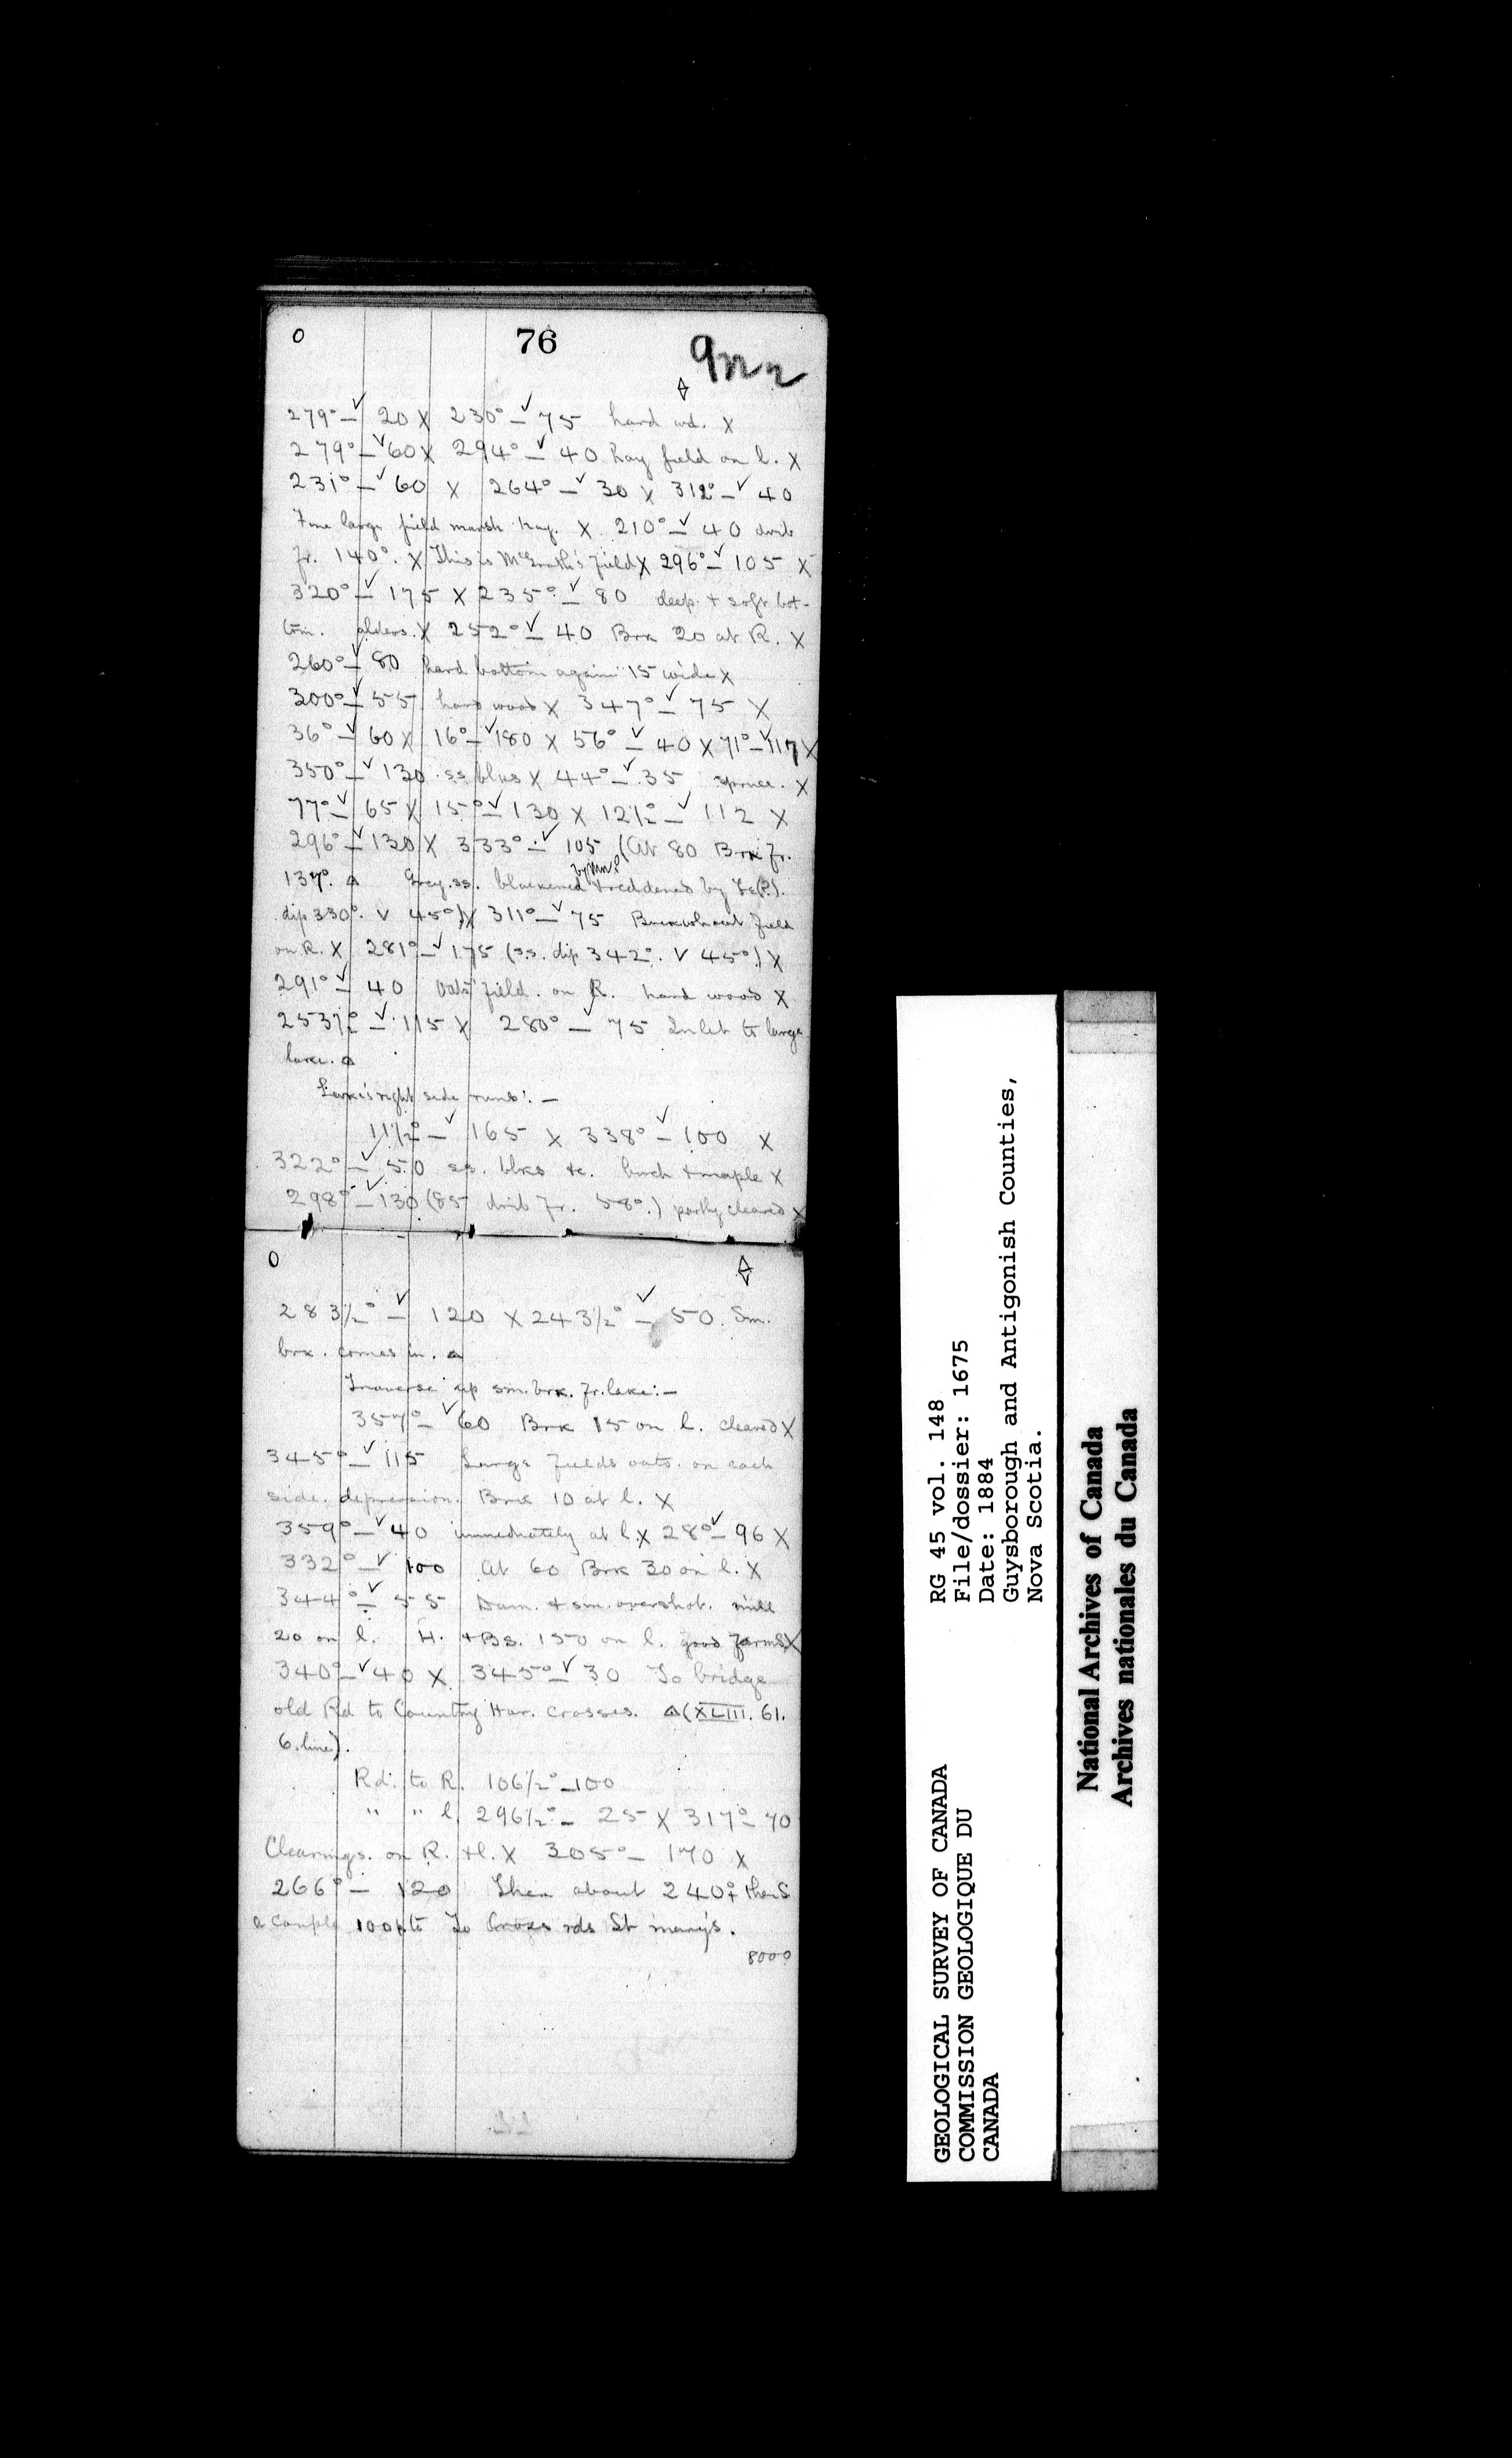 0 76 9
279° – 20 X 230° – 75 hard wd. X
279° – 60 X 294° – 40 hay field on l. X
231° – 60 X 264° – 30 X 312° – 40
Fine large field marsh hay. X 210° – 40 drib
fr. 140°. X This is McGrath's field X 296° – 105 X
320° – 175 X 235° – 80 deep + soft bot-
tom. alders. X 252° – 40 Brk 20 at R. X
260° – 80 hard bottom again 15 wide X
300° – 55 hard wood X 347° – 75 X
36° – 60 X 16° – 180 X 56° – 40 X 71° – 117 X
350° – 130 ss blks X 44° – 35 spruce. X
77° – 65 X 15° – 130 X 12½° – 112 X
296° – 130 X 333° – 105 (At 80 Brk fr.
137°. △ Grey ss. blackened by Mn? + reddened by Fe(?).
dip 330°. V 45°) X 311° – 75 Buckwheat field
on R. X 281° – 175 (s.s. dip 342°. V 45°.) X
291° – 40 Oats field. on R. hard wood X
253½° – 115 X 280° – 75 Inlet to large
lake. △
Lake's right side runs: –
11½° – 165 X 338° – 100 X
322° – 50 ss. blks &c. birch + maple X
298° – 130 (85 drib fr. 58°.) partly cleared X
0
283½° – 120 X 243½° – 50. Sm.
brk. comes in. △
Traverse up sm. brk. fr. lake: –
357° – 60 Brk 15 on l. cleared X
345° – 115 Large fields oats. on each
side. depression. Brk 10 at l. X
359° – 40 immediately at l. X 28° – 96 X
332° – 100 At 60 Brk 30 on l. X
344° – 55 Dam. + sm. overshot. mill
20 on l. H. + Bs. 150 on l. good farms X
340° – 40 X 345° – 30 To bridge
old Rd to Country Har. crosses. △ (XLIII. 61.
6. line).
Rd. to R. 106½° – 100
" " l. 296½° – 25 X 317° – 70
Clearings. on R. + l. X 305° – 170 X
266° – 120 Then about 240° + then S
a couple 100 pts To Cross rds St mary's.
8000
RG 45 vol. 148
File/dossier: 1675
Date: 1884
Guysborough and Antigonish Counties,
Nova Scotia.
GEOLOGICAL SURVEY OF CANADA
COMMISSION GEOLOGIQUE DU
CANADA
National Archives of Canada
Archives nationales du Canada